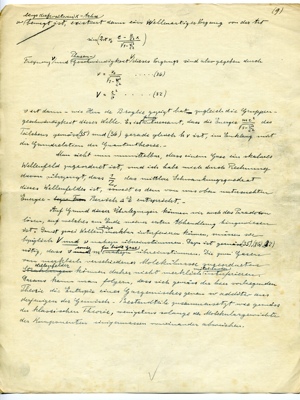 (9)
bewegt ist, existiert dann eine Vorgang von der Art
Frequenz ν und Phasengeschwindigkeit V dieses Vorgangs sind also gegeben durch
(26)
(27)
v ist dann – wie Herr de Broglie gezeigt hat – zugleich die Gruppen-
geschwindigkeit dieser Welle. Es ist interessant, dass die Energie des
Teilchens gemäss (25) und (26) gerade gleich hν ist, im Einklang mit
der Grundrelation der Quantentheorie.
Man sieht nun unmittelbar, dass einem Gase ein skalares
Wellenfeld zugeordnet ist, und ich habe mich durch Rechnung
davon überzeugt, dass das mittlere Schwankungsquadrat
dieses Wellenfeldes ist, soweit es dem von uns oben untersuchten
Energie-Bereich ΔE entspricht.
Auf Grund dieser Überlegungen können wir das Paradoxon
lösen, auf welches am Ende meiner ersten Abhandlung hingewiesen
ist. Damit zwei Wellen interferieren können, müssen sie
bezüglich V und ν nahezu übereinstimmen. Dazu ist gemäss
nötig, dass v und m für beide Gase nahezu übereinstimmen. Die zwei Gasen
von merklich verschiedener Molekülmasse zugeordneten
können daher nicht merklich interferieren.
Daraus kann man folgern, dass sich gemäss der hier vorliegenden
Theorie die Entropie eines Gasgemisches genau so additiv aus
derjenigen der Gemisch-Bestandteile zusammensetzt wie gemäss
der klassischen Theorie, wenigstens solange die Molekulargewichte
der Komponenten einigermassen voneinander abweichen.